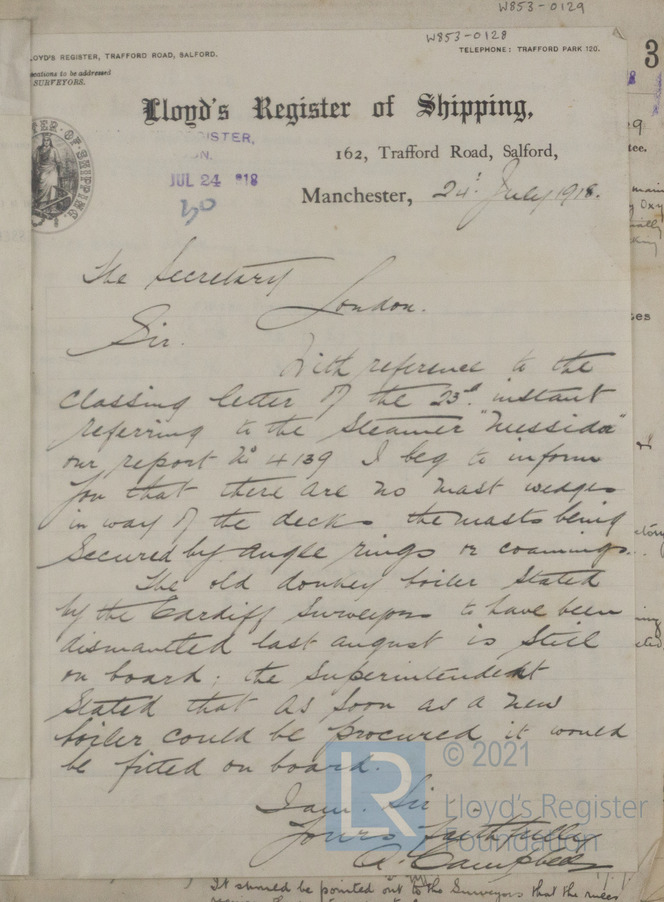 W853-0129
W853-0128
LOYD'S REGISTER, TRAFFORD ROAD, SALFORD.
TELEPHONE: TRAFFORD PARK 120.
to be addressed
SURVEYORS.
Lloyd's Register of Shipping,
162, Trafford Road, Salford,
JUL 24 '18
30
Manchester, 24th July 1918.
The Secretary
London.
Sir.
With reference to the
classing letter of the 23rd instant
referring to the Steamer "Nessida"
our report No 4139 I beg to inform
you that there are no mast wedges
in way of the decks the masts being
secured by angle rings or coamings.
The old donkey boiler stated
by the Cardiff Surveyors to have been
dismantled last august is still
on board; the Superintendent
stated that as soon as a new
boiler could be procured it would
be fitted on board.
I am Sir
Yours faithfully
A. Campbell
© 2021
LR
Lloyd's Register
Foundation
It should be pointed out to the Surveyors that the rules